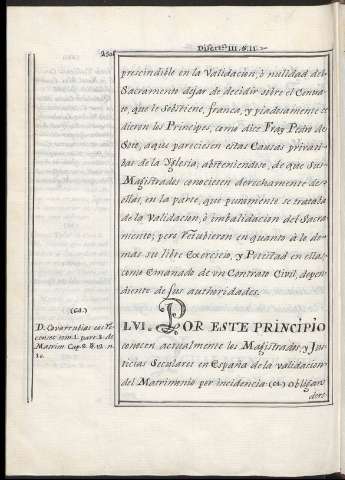 Disert.n III. §. II.
prescindible en la Validacion, ò nulidad del
Sacramento dejar de decidir sobre el Contra-
to, que le Sobstiene, franca, y piadosamente ce-
dieron los Principes, como dice Fray Pedro de
Soto, à que pareciesen estas Causas privati-
bas de la Yglesia; absteniendose, de que sus
Magistrados conociesen derechamente de
ellas, en la parte, que puramente se tratada
de la Validacion, ò imbalidacion del Sacra-
mento; pero retubieron en quanto à lo de-
mas su libre Exercicio, y Potestad en ellas,
como emanado de un Contrato Civil, depen-
diente de sus authoridades.
LVI. POR ESTE PRINCIPIO
conocen actualmente los Magistrados, y Jus-
ticias Seculares en España de la validacion
del Matrimonio por incidencia (a) obligan
dose
(a)
D. Covarrubias
tom. 1. part. 2. de
Matrim. Cap. 8. §. 12. n.
1.